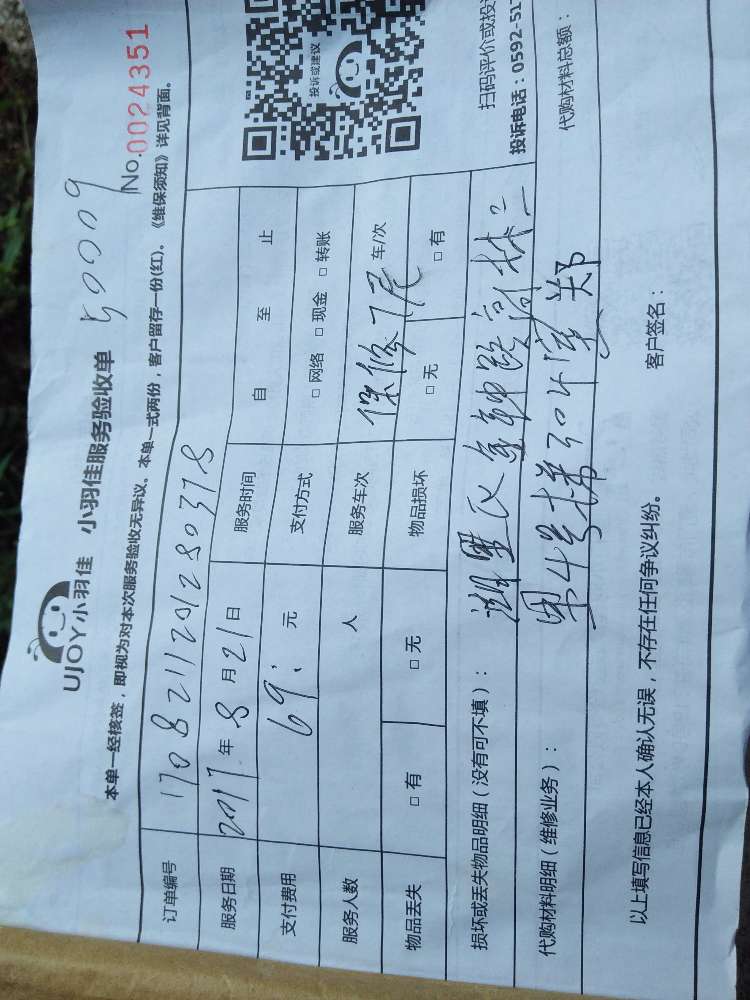 UJOY小羽佳 小羽佳服务验收单 50009
No.0024351
本单一经核签，即视为对本次服务验收无异议。本单一式两份，客户留存一份(红)。《维保须知》详见背面。
订单编号 170821120128037
服务日期 2017年8月21日 服务时间 自 至 止
支付费用 69. 元 支付方式 □ 网络 □ 现金 □ 转账
服务人数 人 服务车次 保修7天 车/次
物品丢失 □ 有 □ 无 物品损坏 □ 无 □ 有
投诉或建议
扫码评价或投
投诉电话：0592-51
损坏或丢失物品明细（没有可不填）： 湖里区金钟路高林二
代购材料明细（维修业务）： 里4号梯704 郑
代购材料总额：
以上填写信息已经本人确认无误，不存在任何争议纠纷。 客户签名：